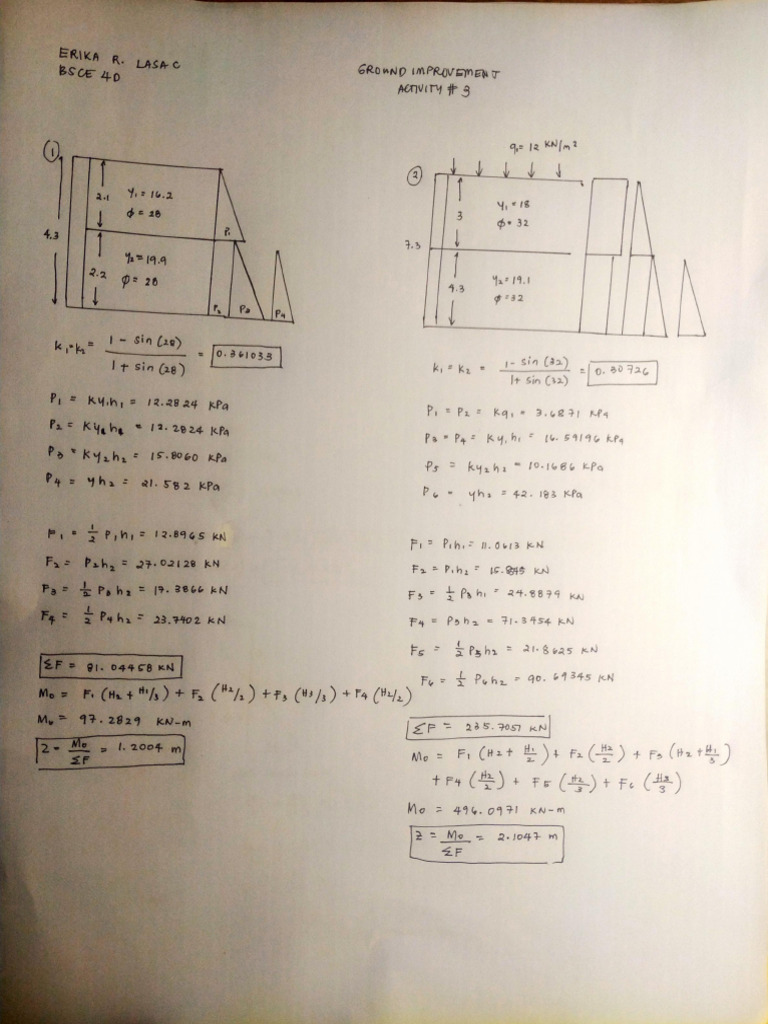 ERIKA R. LASAC
BSCE 4D
GROUND IMPROVEMENT
ACTIVITY # 3
①
2.1
γ₁ = 16.2
φ = 28
P₁
4.3
2.2
γ₂ = 19.9
φ = 28
P₂ P₃ P₄
K₁ = K₂ = 1 - sin (28) / 1 + sin (28) = 0.361033
P₁ = Kγ₁h₁ = 12.2824 KPa
P₂ = Kγ₁h₁ = 12.2824 KPa
P₃ = Kγ₂h₂ = 15.8060 KPa
P₄ = γh₂ = 21.582 KPa
F₁ = 1/2 P₁h₁ = 12.8965 KN
F₂ = P₂h₂ = 27.02128 KN
F₃ = 1/2 P₃h₂ = 17.3866 KN
F₄ = 1/2 P₄h₂ = 23.7402 KN
ΣF = 81.04458 KN
Mo = F₁ (H₂ + H₁/3) + F₂ (H₂/2) + F₃ (H₃/3) + F₄ (H₂/2)
Mo = 97.2829 KN-m
Z = Mo/ΣF = 1.2004 m
q = 12 KN/m²
②
3
γ₁ = 18
φ = 32
7.3
4.3
γ₂ = 19.1
φ = 32
K₁ = K₂ = 1 - sin (32) / 1 + sin (32) = 0.30726
P₁ = P₂ = Kq₁ = 3.6871 KPa
P₃ = P₄ = Kγ₁h₁ = 16.59196 KPa
P₅ = Kγ₂h₂ = 10.1686 KPa
P₆ = γh₂ = 42.183 KPa
F₁ = P₁h₁ = 11.0613 KN
F₂ = P₁h₂ = KN
F₃ = 1/2 P₃h₁ = 24.8879 KN
F₄ = P₃h₂ = 71.3454 KN
F₅ = 1/2 P₅h₂ = 21.8625 KN
F₆ = 1/2 P₆h₂ = 90.69345 KN
ΣF = 235.7051 KN
Mo = F₁ (H₂ + H₁/2) + F₂ (H₂/2) + F₃ (H₂ + H₁/3)
+ F₄ (H₂/2) + F₅ (H₂/3) + F₆ (H₃/3)
Mo = 496.0971 KN-m
Z = Mo/ΣF = 2.1047 m